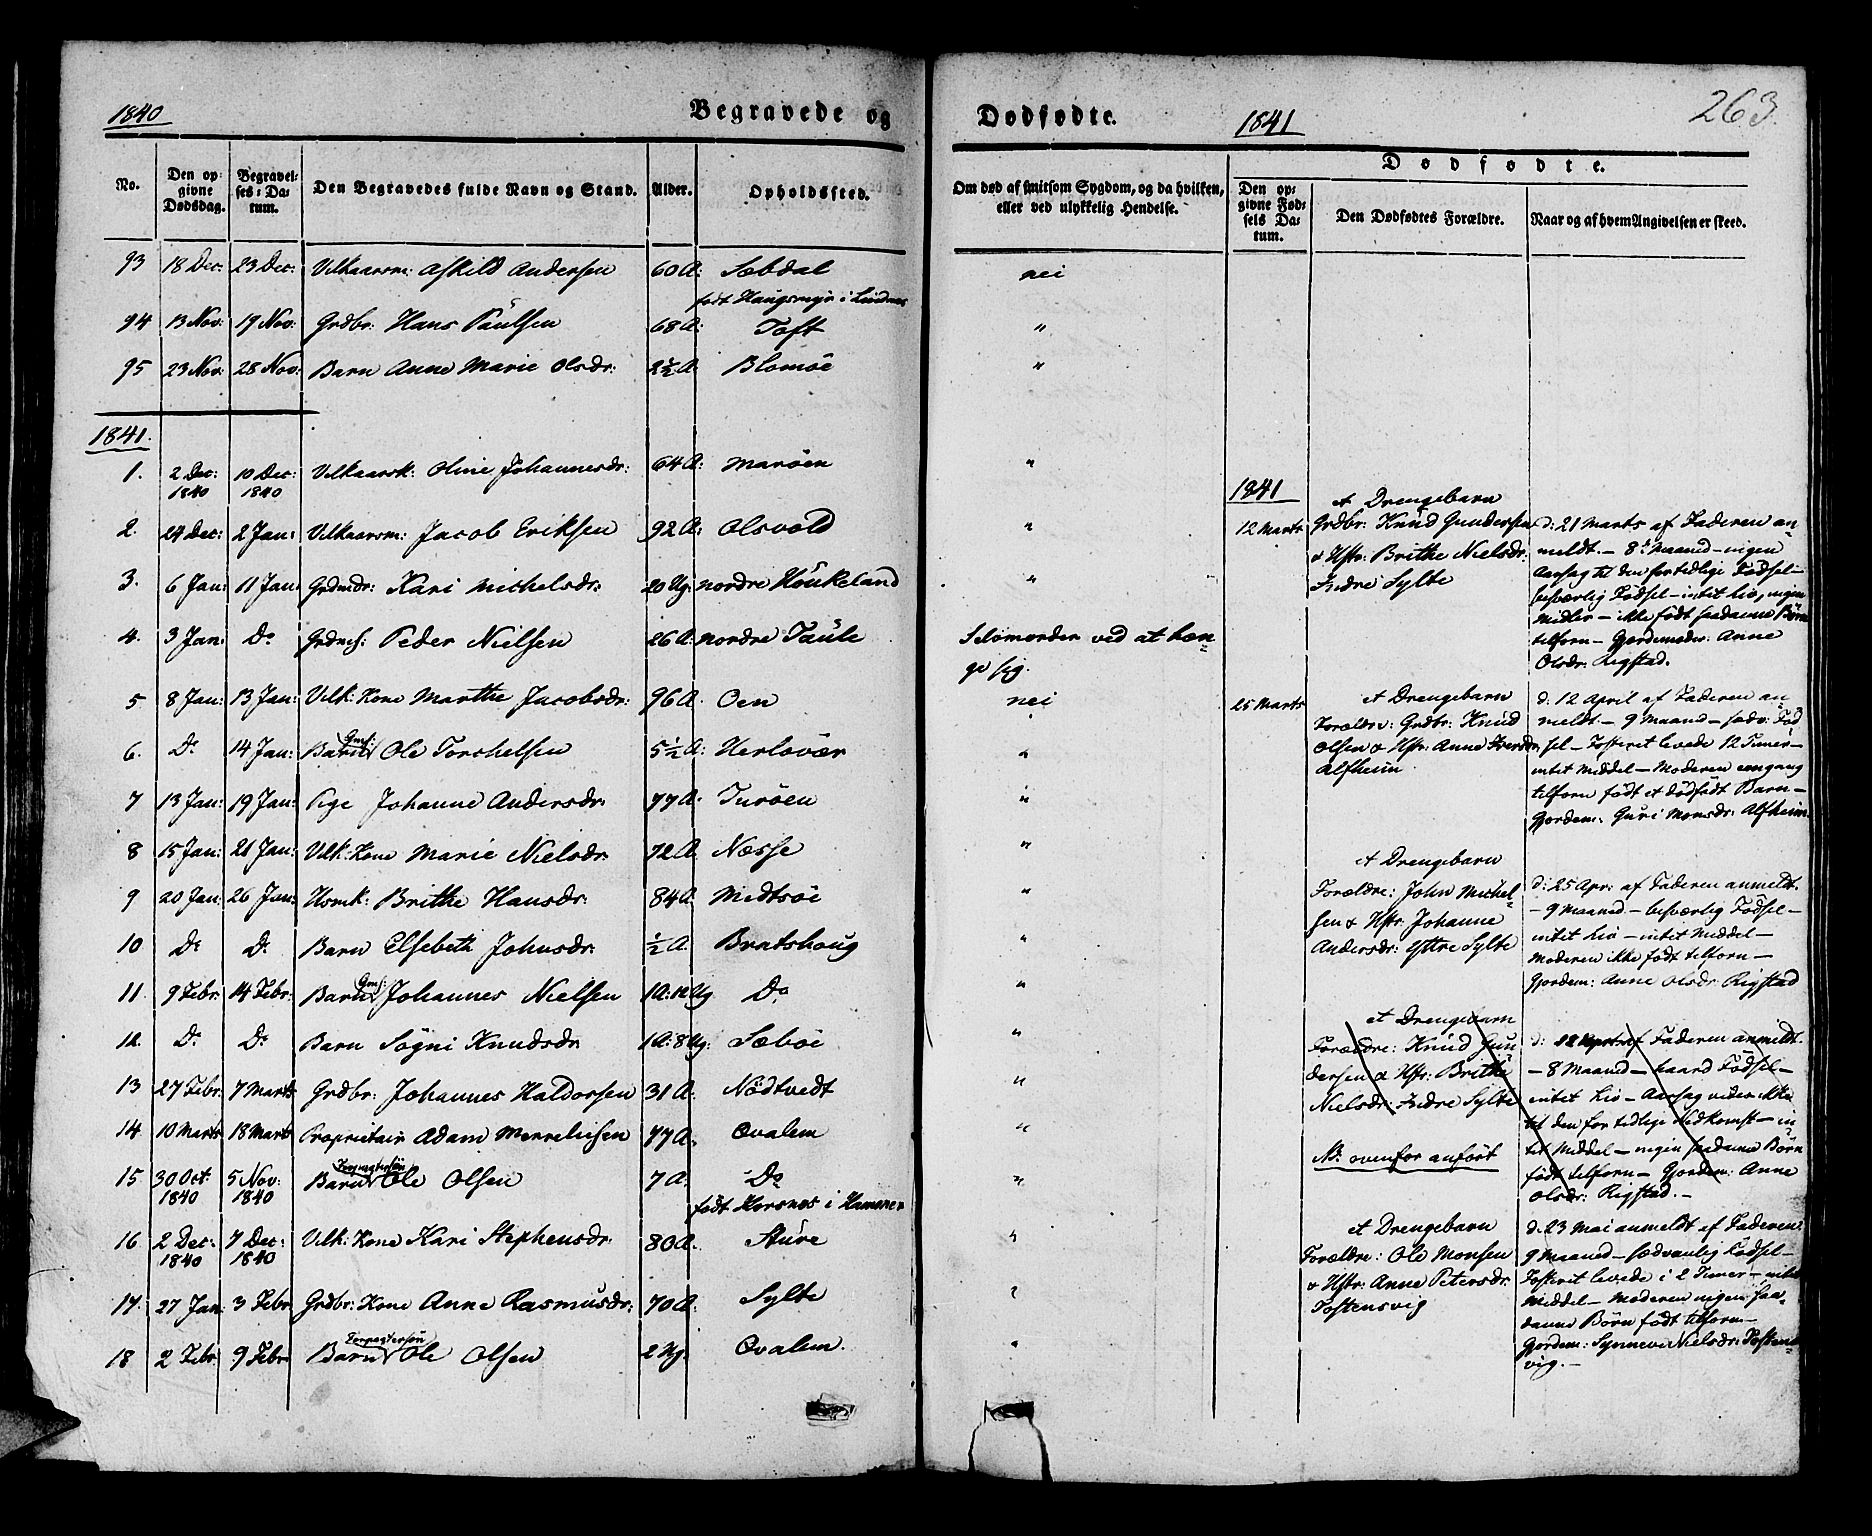 1840
Begravede og
No.
Den opgivne Dødsdag.
Begravelses-Datum.
Den Begravedes fulde Navn og Stand.
Alder.
Opholdssted.
93 18 Dec: 23 Dec: Vilkaarsm: Askild Andersen 60 A: Sæbdal
født Haugsmyr i Lindaas
94 13 Nov: 19 Nov: Grdbr: Hans Paulsen 68 A: Toft
95 23 Nov: 28 Nov: Barn Anne Marie Olsdr: 2½ A Blomøe
1841.
1. 2 Dec: 10 Dec: Vilkaarsk: Oline Johannesdr: 64 A: Marøen
1840 1840
2. 24 Dec: 2 Jan: Vilkaarsm: Jacob Eriksen 92 A: Olsvold
3. 6 Jan: 11 Jan: Grdmdr: Kari Michelsdr: 20 Ug: nordre Houkeland
4. 3 Jan: Do Grdms: Peder Nielsen 26 A: nordre Taule
5 8 Jan: 13 Jan: Vilk: Kone Marthe Jacobsdr: 96 A: Oen
6. Do 14 Jan: Barn Gms: Ole Torchelsen 5½ A: Herløvær
7 13 Jan: 19 Jan: Pige Johanne Andersdr: 77 A: Turøen
8 15 Jan: 21 Jan: Vilk: Kone Marie Nielsdr: 72 A Næsse
9 20 Jan: 26 Jan: Husmk: Brithe Hansdr: 84 A: Midtsøe
10 Do Do Barn Elsebeth Johnsdr: ½ A: Bratshoug
11. 9 Febr: 14 Febr: Barn Gms: Johannes Nielsen 1 A: 12 Ug Do
12. Do Do Barn Sögni Knudsdr 1 A: 8 Ug: Sæbøe
13 27 Febr: 7 Marts Grdbr: Johannes Haldorsen 31 A: Nödtvedt
14 10 Marts 18 Marts Proprietair Adam Merrelhsen 77 A: Qvalem
15 30 Oct: 5 Nov: Barn Forpagtersön Ole Olsen 7 A: Do
1840 1840 født Horsnes i Hammer
16 2 Dec: 7 Dec: Vilk: Kone Kari Stephensdr: 80 A: Sture
1840 1840
17. 27 Jan 3 Febr Grdbr: Kone Anne Rasmusdr: 70 A: Sylte
18 2 Febr 9 Febr Barn Forpagtersön Ole Olsen 2 Ug. Qvalem.
Dødfødte.
1841
263.
Om død af smitsom Sygdom, og da hvilken,
eller ved ulykkelig Hendelse.
Dødfødte.
Den opgivne Fødsels Datum.
Den Dødfødtes Forældre.
Naar og af hvem Angivelsen er skeed.
nei
"
"
"
"
"
Selvmorder ved at hæn-
ge sig.
nei
"
"
"
"
"
"
"
"
"
"
"
"
"
1841
et Drengebarn
12 Marts Grdbr: Knud Gundersen
& Hstr: Brithe Nielsdr:
Indre Sylte
d: 21 Marts af Faderen an-
meldt - 8 Maaned - ingen
Aarsag til den fortidlige Födsel -
besværlig Födsel - intet Liv, ingen
Midler - ikke født saadanne Börn
tilforn - Gjordemoder: Anne
Olsdr: Rigstad.
et Drengebarn
25 Marts Forældre: Grdbr: Knud
Olsen & Hstr: Anne Iversdr:
Alfheim
d: 12 April af Faderen an-
meldt - 9 Maaned - sædv: Föd
sel - Fosteret levede 12 Timer -
intet Middel - Moderen eengang
tilforn født et dödfödt Barn -
Gjordem: Guri Monsdr: Alfheim
et Drengebarn
Forældre: John Michel-
sen & Hstr: Johanne
Andersdr: Yttre Sylte
d: 25 Apr: af Faderen anmeldt.
- 9 Maaned - besværlig Födsel -
intet Liv - intet Middel -
Moderen ikke født tilforn -
Gjordem: Anne Olsdr: Rigstad
et Drengebarn
Forældre: Knud Gun
dersen & Hstr: Brithe
Nielsdr: Indre Sylte
NB: ovenfor anført
d: 12 April af Faderen anmeldt.
- 8 Maaned - haard Födsel -
intet Liv - Aarsag vides ikke
til den fortidlige Nedkomst - in
tet Middel - ingen saadanne Börn
født tilforn - Gjordem: Anne
Olsdr: Rigstad. -
et Drengebarn
Forældre: Ole Monsen
& Hstr: Anne Petersdr:
Tostensvig
d: 23 Mai anmeldt af Faderen
9 Maaned - sædvanlig Födsel -
Fosteret levede i 2 Timer - intet
Middel - Moderen ingen saa-
danne Börn født tilforn -
Gjordem: Synneve Nielsdr: Tostens-
vig. -